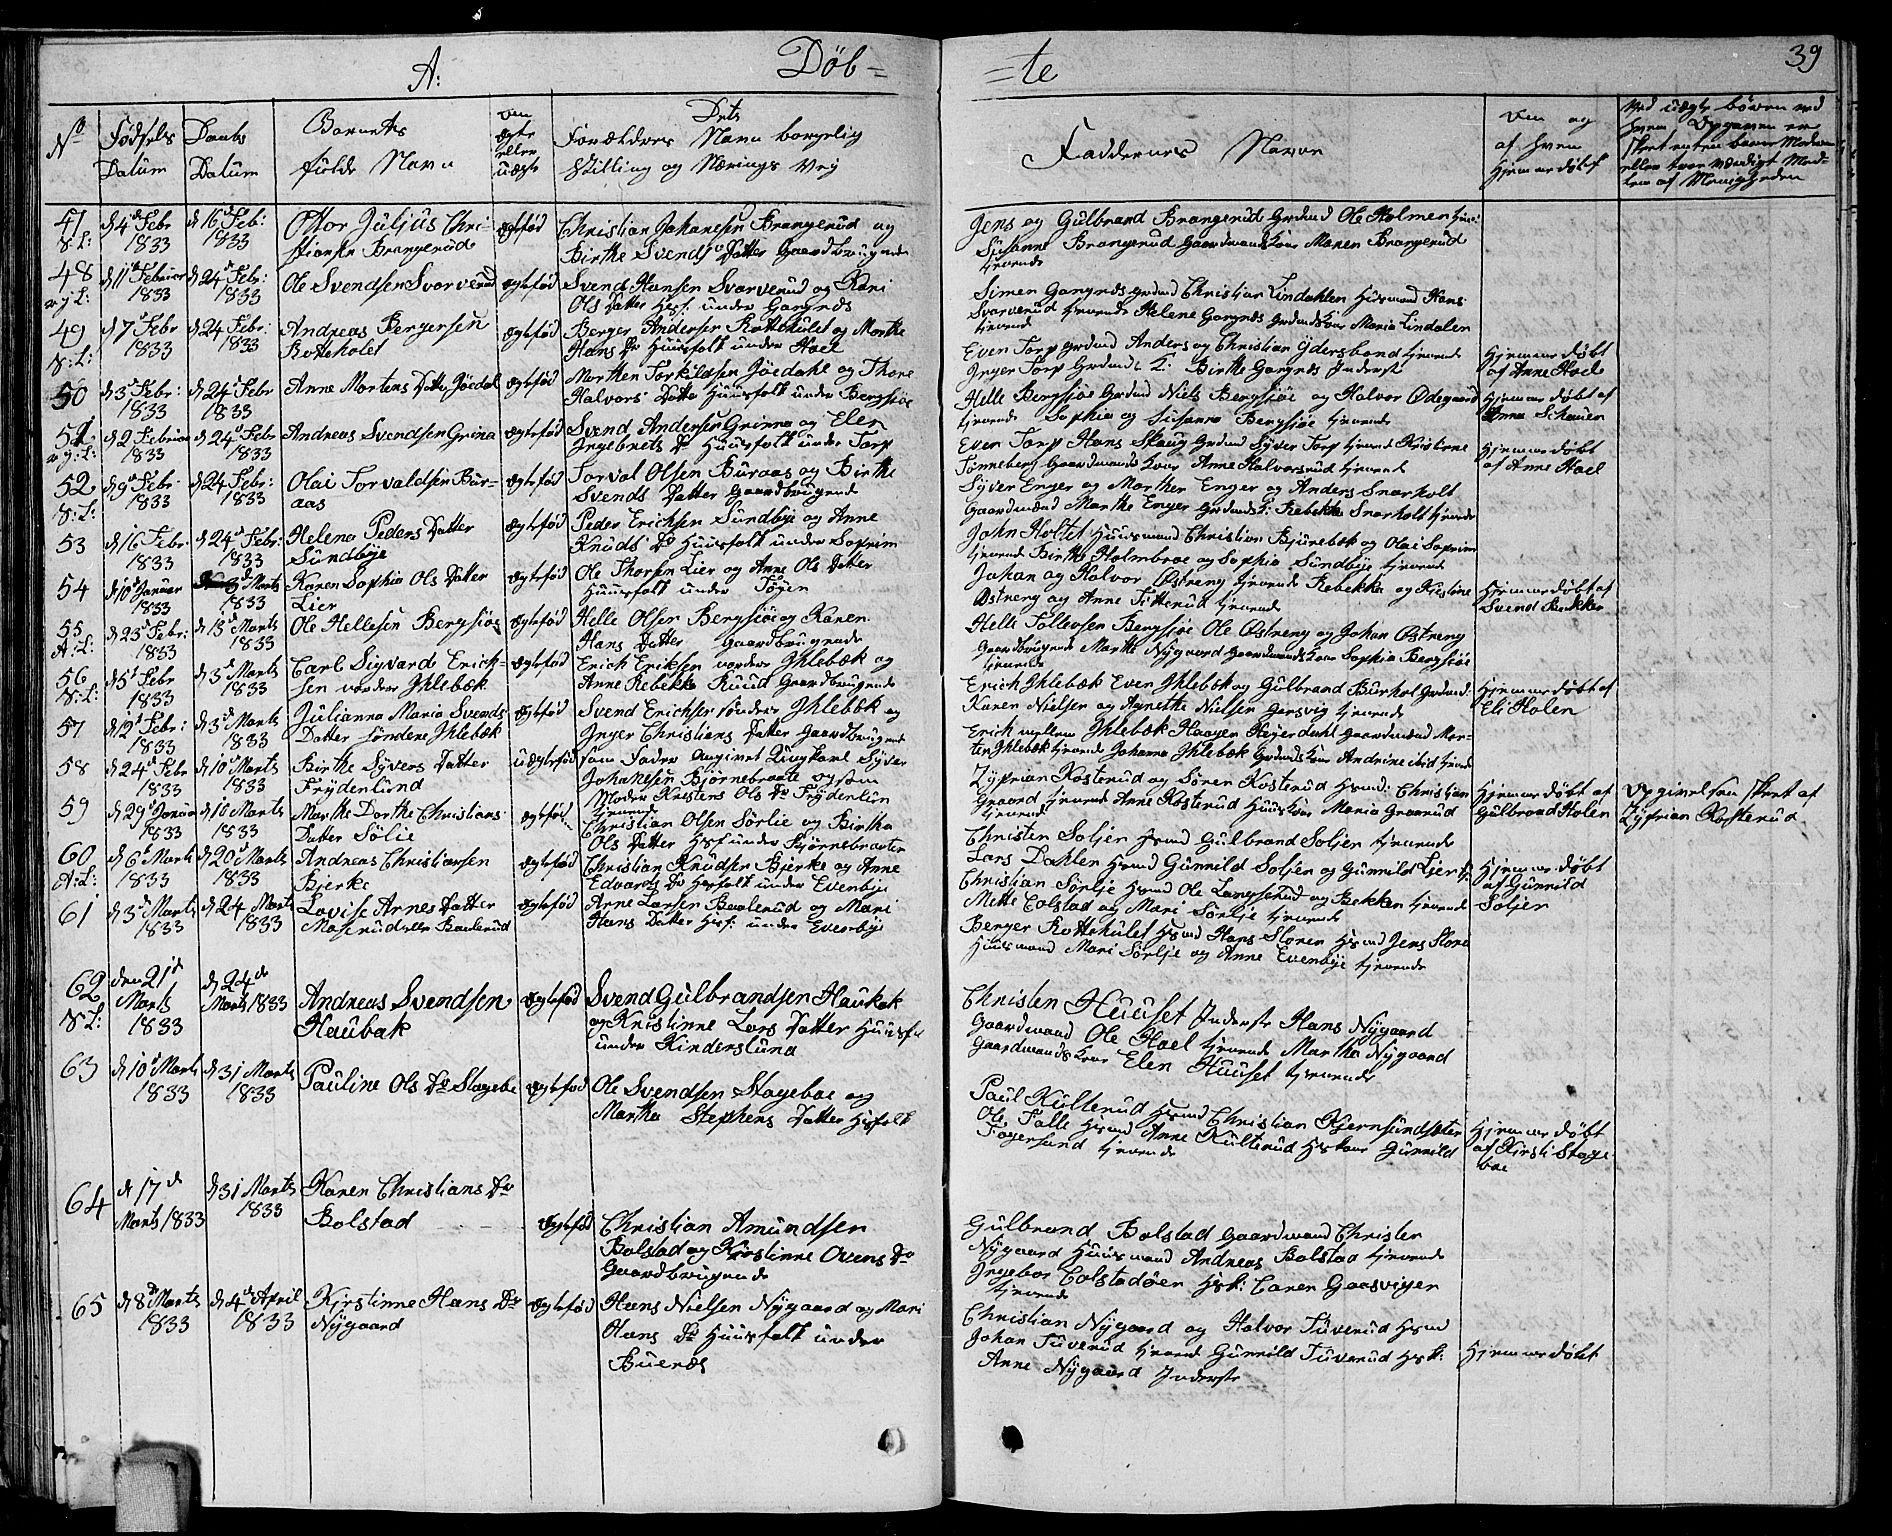 A: Döb= =te 39
No Födsels Datum
Daabs Datum
Barnets fulde Navn
om ægte eller uægte
Dets Forældres Navn borgelig Stilling og Nærings Vej
Faddernes Navne
Om og af hvem hjemmedöbt
Ved uægte börn ved hvem Opgaven er skeet enten
47 N:L: d 4d Febr 1833 d 16d Feb: 1833
Ottor Juljus Christiansen Brangerud
ægtefød
Christian Johanesen Brangerud og
Birthe Svends Datter Gaardbrugende
Jens og Gulbrand Brangerud Grdmd Ole Holmen
Susanne Brangerud Gaardmandskone Maren Brangerud
tjenende
48 d 11d Februar 1833 d 24d Febr: 1833
Ole Svendsen Svarverud
ægtefød
Svend Hansen Svarverud og Kari
Ols Datter Hsf: under Gorgnes
Simen Gorgnes Grdmd Christian Lindahlen Husmand Hans
Svarverud tjenende Helene Gorgnes Grdmdskone Maria Lindalen
tjenende
49 N:L: d 7d Febr 1833 d 24 Febr: 1833
Andreas Bergersen
Rotteholet
ægtefød
Berger Andersen Rottehulet og Marthe
Hans Dr Huusfolk under Hoel
Even Torp Grdmd Anders og Christian Ydersbond tjenende
Inger Torp Grdmds K: Birthe Gorgnes Inderste
Hjemmedøbt
af Anne Hoele
50 d 3d Febr: 1833 d 24d Febr 1833
Anne Mortens Datter Jöedal
ægtefød
Morthen Torkildsen Jöedahl og Thore
Halvors Datter Huusfolk under Bergsjöe
Helle Bergsjöe Grdmd Niels Bergsjöe og Halvor Ödegaard
tjenende Sophia og Susanne Bergsjöe tjenende
Hjemmedøbt af
Anna Schouen
51 d 2 Februar 1833 d 24d Febr 1833
Andreas Svendsen Grina
ægtefød
Svend Andersen Grinna og Elen
Ingebrets Dr Huusfolk under Torp
Even Torp Hans Skaug Grdmd Syver Torp tjenende Kristine
Tønneberg Gaardmands Kone Anne Halvorsrud tjenende
Hjemmedøbt
af Anne Hoel
52 N:L: d 9d Febr 1833 d 24 Febr: 1833
Olai Torvaldsen Buraas
ægtefød
Torval Olsen Buraas og Birthe
Svends Datter Gaardbrugende
Syver Enger og Morthen Enger og Anders Snarholt
Gaardmænd Marthe Enger Grdmdsk: Rebekka Snarholt tjenende
53 d 16 Febr: 1833 d 24d Febr: 1833
Helena Peders Datter
Sundbye
ægtefød
Peder Erichsen Sundbye og Anne
Knuds Dr Huusfolk under Soprim
John Holtet Huusmand Christian Bjunebæk og Olai Soprim
tjenende Birthe Holmbroe og Sophia Sundbye tjenende
54 d 10d Januar 1833 3d Marts 1833
Karen Sophia Ols Datter
Lier
ægtefød
Ole Thorsen Lier og Anne Ols Datter
Huusfolk under Togen
Johan og Halvor Østreng tjenende Rebekka og Kristine
Østreng og Anne Fitterud tjenende
Hjemmedøbt af
Svend Bakken
55 A:L: d 23d Febr: 1833 d 13d Marts 1833
Ole Hellesen Bergsjöe
ægtefød
Helle Olsen Bergsjöe og Karen
Hans Datter Gaardbrugende
Helle Tollevsen Bergsjöe Ole Østreng og Johan Østreng
Gaardbrugende Marthe Nygaard Gaardmandskone Sophia Bergsjöe
tjenende
56 N:L: d 5d Febr 1833 d 3d Marts 1833
Carl Sigvard Erichsen nordre Ihlebæk
ægtefød
Erich Eriksen nordre Ihlebæk og
Anne Rebekka Ruud Gaardbrugende
Erich Ihlebæk Even Ihlebæk og Gulbrand Burhol Grdmd:
Karen Nielsen og Agnethe Nielsen Gorsvig tjenende
Hjemmedøbt af
Eli Holen
57 d 12d Febr: 1833 d 3d Marts 1833
Julianna Maria Svends
Datter sondene Ihlebæk
ægtefød
Svend Erichsen sondre Ihlebæk og
Inger Christians Datter Gaardbrugende
Erich mellem Ihlebæk Haagen Rejerdahl Gaardmænd Morten Ihlebæk tjenende Johanna Ihlebæk Grdmdskone Andrine ibid tjenende
58 d 24d Febr 1833 d 10d Marts 1833
Birthe Syvers Datter
Frydenlund
uægtefød
som Fader angivet Ungkarl Syver
Johansen Bjørnebraate og som
Moder Kristens Ols Dr Frydenlun
tjenende
Zyprian Kosterud og Sören Kosterud Hsmd: Christian
Graarud tjenende Anne Kosterud Huuskone Maria Graarud
tjenende
Hjemmedøbt af
Gulbrand Holen
Opgivelsen skeet af
Zyprian Kosterud
59 d 29d Januar 1833 d 10 Marts 1833
Marthe Dorthe Christians
Datter Sølie
ægtefød
Christian Olsen Sörlie og Birtha
Ols Datter Hsf under Bjørnebraaten
Christen Soljer Hsmd Gulbrand Soljer tjenende
Lars Dahlen Hsmd Gunnild Soljer og Gunnild Lier
60 A:L: d 6d Marts 1833 d 20d Marts 1833
Andreas Christiansen
Bjerke
ægtefød
Christian Knudsen Bjerke og Anne
Edvards Dr Hsfolk under Evenbye
Christian Sörlje Hsmd Ole Langserud og Bekken tjenende
Mette Colstad og Mari Sörlje tjenende
Hjemmedøbt
af Gunnild
Soljer
61 d 3d Marts 1833 d 24 Marts 1833
Lovise Arnes Datter
Moserud eller Baalerud
ægtefød
Arne Larsen Baalerud og Mari
Hans Datter Hsf: under Evenbye
Berger Rottehulet Hsmd Hans Sloren Hsmd Jens Slore
Huusmand Mari Sörlje og Anne Evenbye tjenende
62 N:L: den 21d Marts 1833 d 24de Marts 1833
Andreas Svendsen
Haubak
ægtefød
Svend Gulbrandsen Haukak
og Kristinne Lars Datter Huusf
under Kinderslund
Christen Huuset Inderste Hans Nygaard
Gaardmand Ole Hoel tjenende Martha Nygaard
Gaardmands Kone Elen Huuset tjenende
63 d 10d Marts 1833 d 31 Marts 1833
Pauline Ols Dr Stagebe
ægtefød
Ole Svendsen Stagebae og
Martha Stephens Datter Hsfolk
Paul Kulterud Hsmd Christian Kjernsundsæter
Ole Falle Hsmd Anne Kulterud Hskone Gunnild
Fogersund tjenende
Hjemmedøbt
af Kirsti Stagebae
64 d 17d Marts 1833 d 31 Marts 1833
Karen Christians Dr
Bolstad
ægtefød
Christian Amundsen
Bolstad og Kirstinne Ovens Dr
Gaardbrugende
Gulbrand Bolstad Gaardmand Christen
Nygaard Huusmand Andreas Bolstad tjenende
Ingebor Colstadöen Hsk: Caren Gaasvigen
tjenende
65 d 8d Marts 1833 d 4d April 1833
Kjrstinne Hans Dr
Nygaard
ægtefød
Hans Nielsen Nygaard og Mari
Hans Dr Huusfolk under
Buenæs
Christian Nygaard og Halvor Tuverud Hsmd
Johan Tuverud tjenende Gunnild Tuverud Hsk:
Anne Nygaard Inderste
Hjemmedøbt